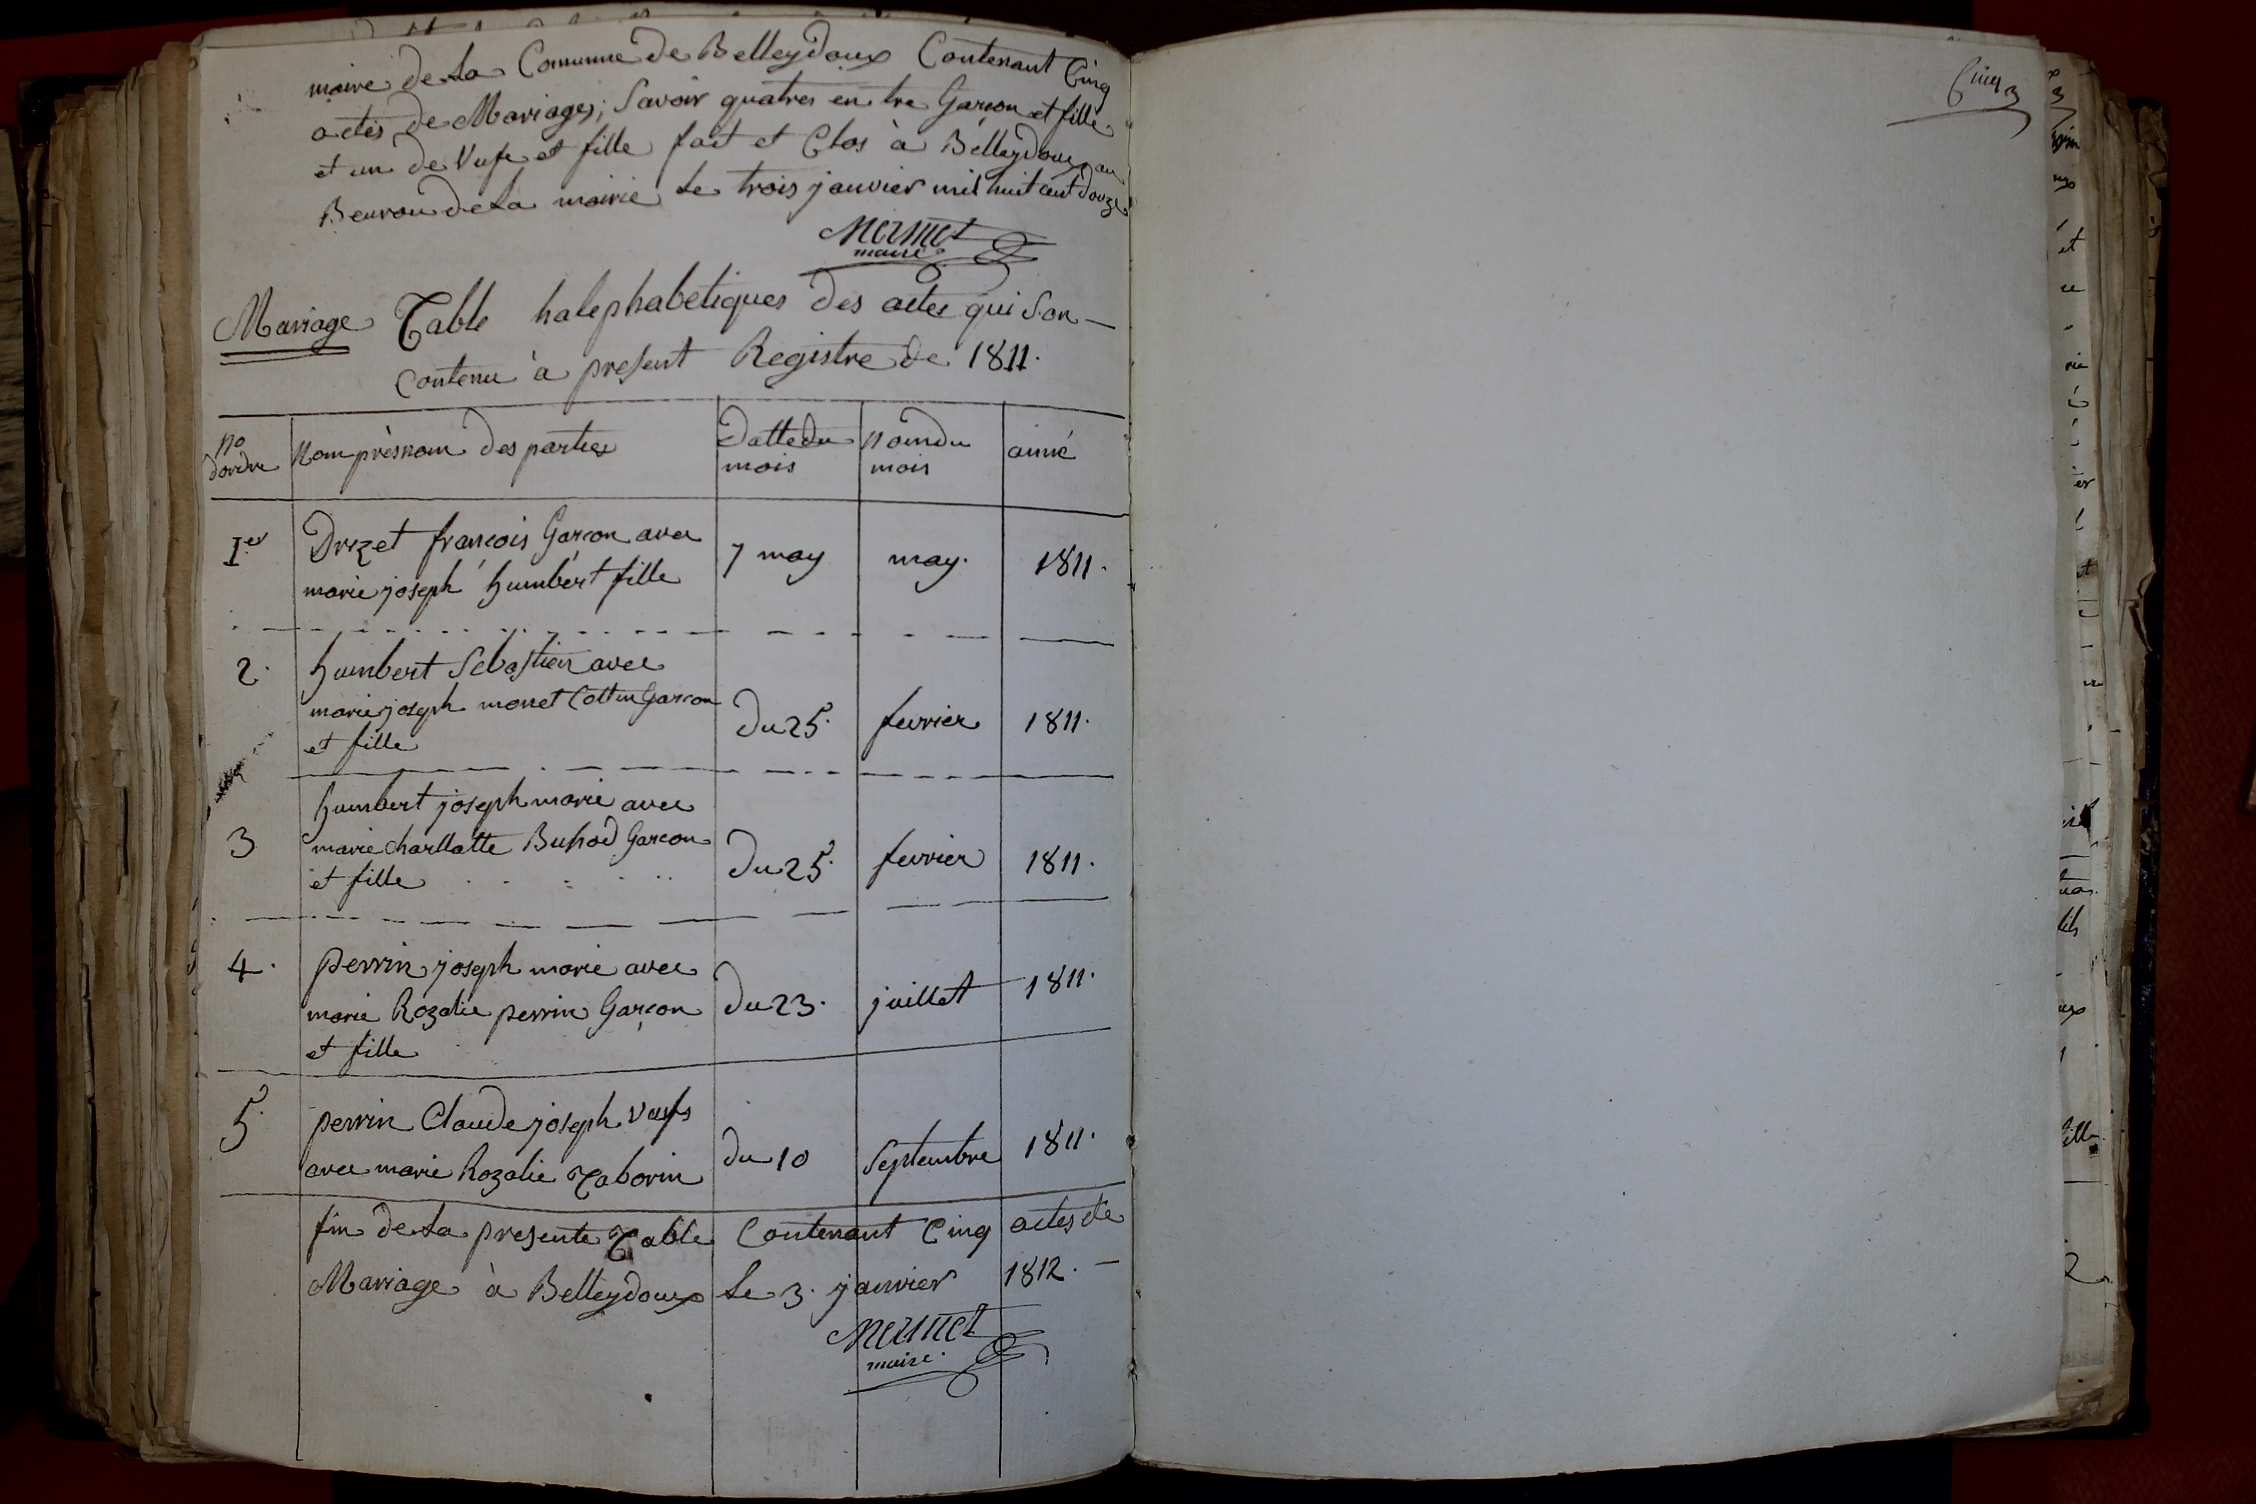 maire de la Commune de Belleydoux Contenant Cinq
actes de Mariages; Savoir quatres entre Garçon et fille
et un de Vufe et fille fait et Clos à Belleydoux au
Beurau de la mairie le trois janvier mil huit cent douze
Mermet
maire
Mariage Table halephabetiques des actes qui Son
Contenu à present Registre de 1811.
no d'ordre
Nom prèsnom des parties
Datte du mois
nom du mois
anné
1er
Drezet françois Garçon avec
marie joseph humbert fille
7 may
may.
1811.
2.
humbert Sebastien avec
marie joseph monet Cottin Garçon
et fille
Du 25.
fevrier
1811.
3
humbert joseph marie avec
marie charllatte Buhod Garcon
et fille
Du 25.
fevrier
1811.
4.
perrin joseph marie avec
marie Rozalie perrin Garçon
et fille
Du 23.
juillet
1811.
5.
perrin Claude joseph Veufs
avec marie Rozalie Taborin
du 10
Septembre
1811.
fin de la presente Table Contenant Cinq actes de
Mariage à Belleydoux le 3. janvier 1812.
Mermet
maire.